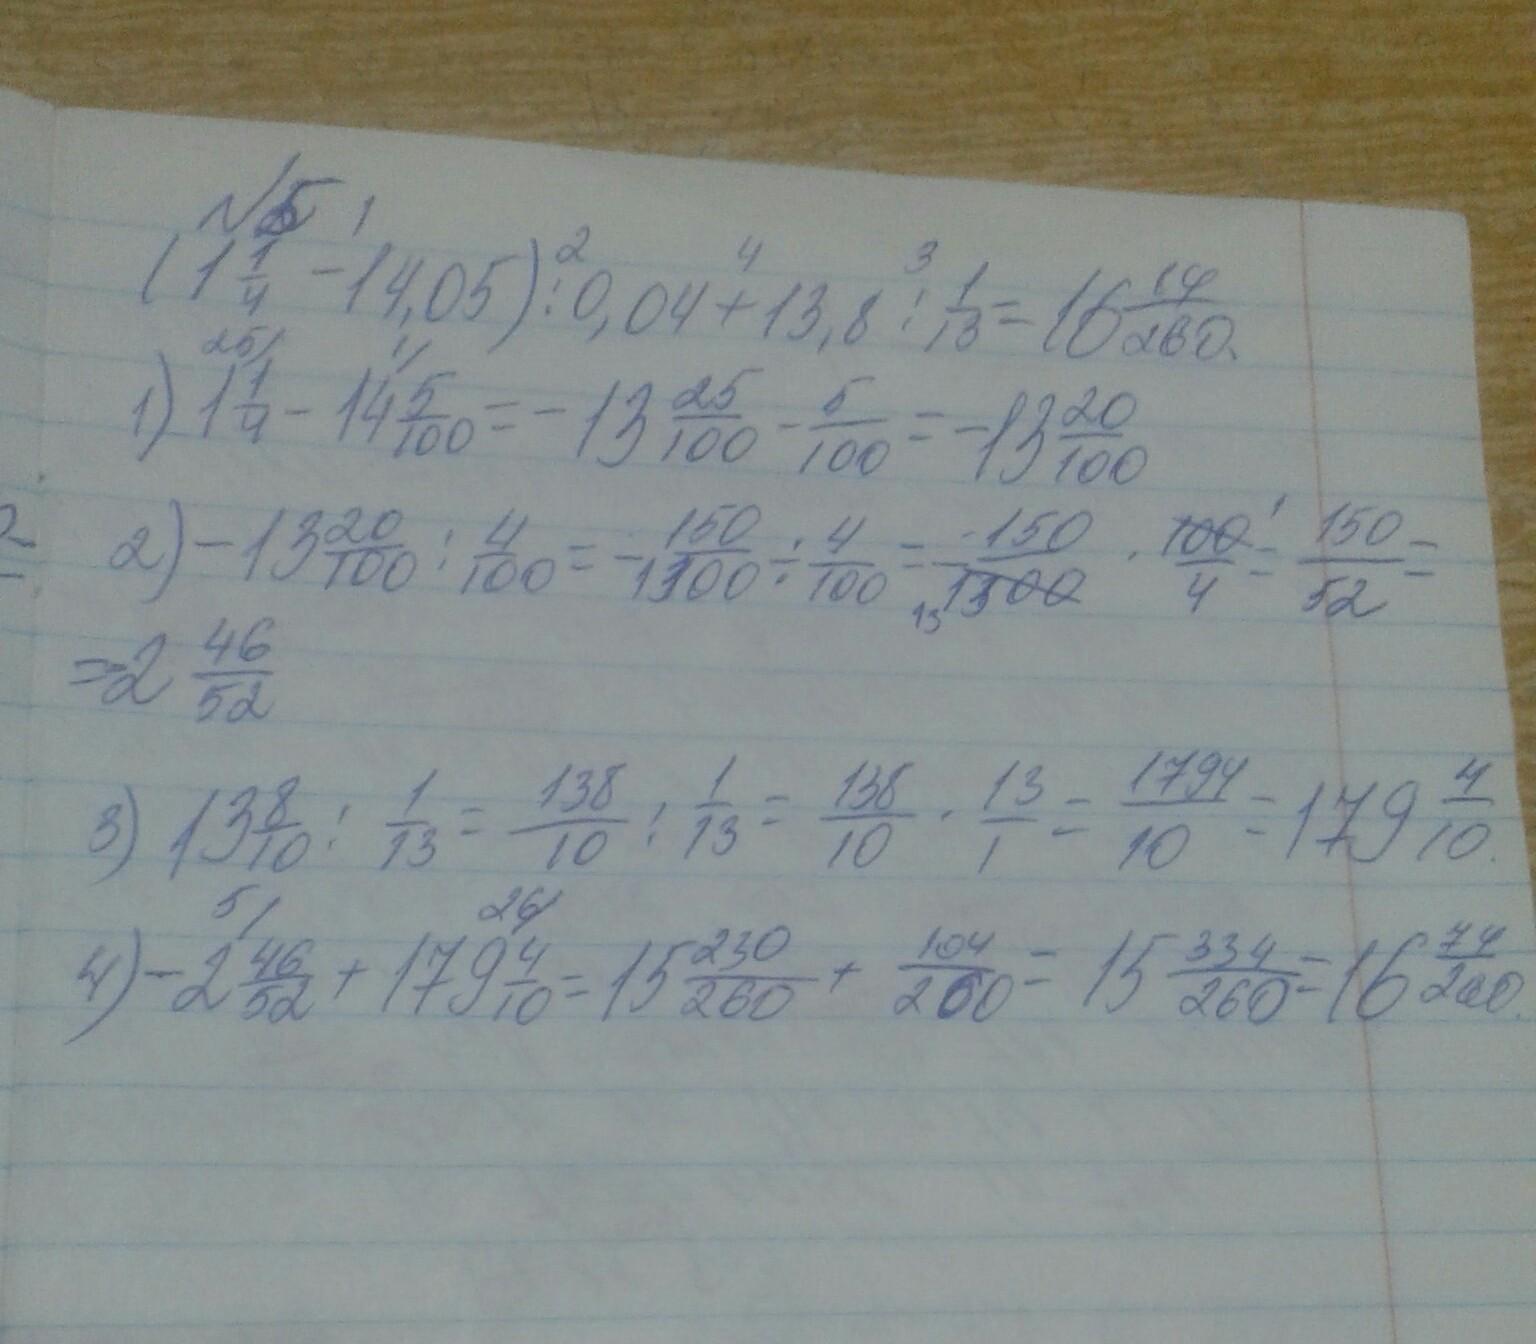 №5
(1 1/4 - 14,05) : 0,04 + 13,8 : 1/13 = 16 14/260.
1) 1 1/4 - 14 5/100 = -13 25/100 - 5/100 = -13 20/100
2) -13 20/100 : 4/100 = -150/1300 : 4/100 = -150/1300 · 100/4 = 150/52 =
= 2 46/52
3) 13 8/10 : 1/13 = 138/10 : 1/13 = 138/10 · 13/1 = 1794/10 = 179 4/10.
4) -2 46/52 + 179 4/10 = 15 230/260 + 104/260 = 15 334/260 = 16 74/260.